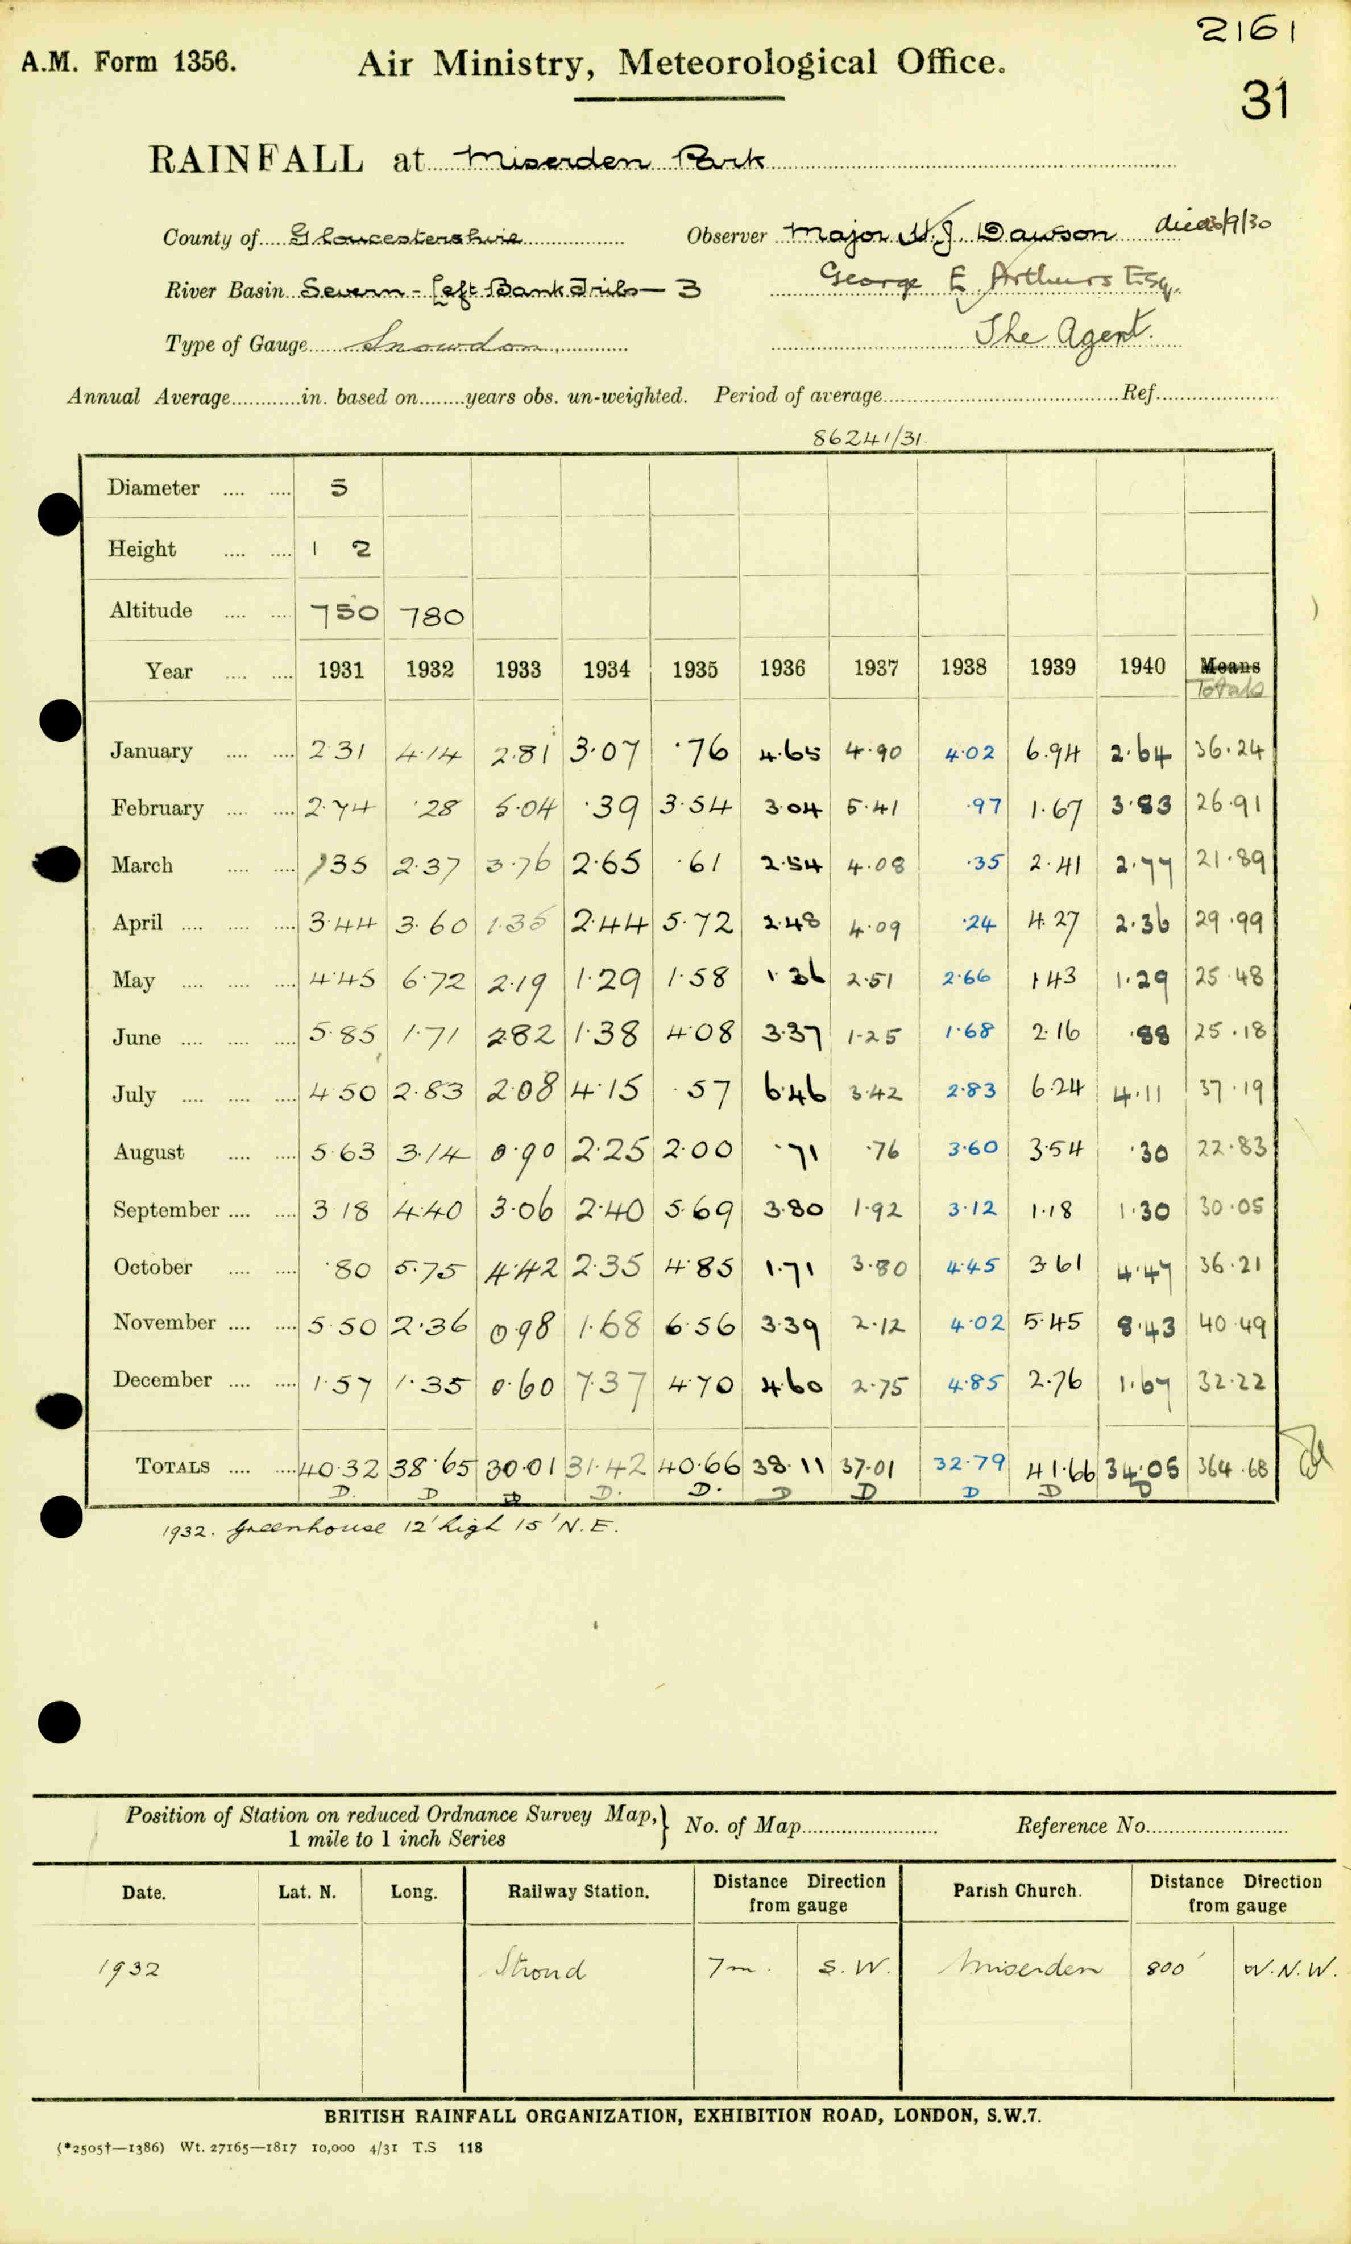 2161
A.M. Form 1356. Air Ministry, Meteorological Office.
31
RAINFALL at Miserden Park
County of Gloucestershire Observer Major W.J. Dawson died 3/9/30
River Basin Severn - Left Bank Tribs - 3 George E Arthurs Esq.
Type of Gauge Snowdon The Agent.
Annual Average in. based on years obs. un-weighted. Period of average Ref.
86241/31
Diameter 5
Height 1 2
Altitude 750 780
Year 1931 1932 1933 1934 1935 1936 1937 1938 1939 1940 Means
Totals
January 2.31 4.14 2.81 3.07 .76 4.65 4.90 4.02 6.94 2.64 36.24
February 2.74 .28 5.04 .39 3.54 3.04 5.41 .97 1.67 3.83 26.91
March 1.35 2.37 3.76 2.65 .61 2.54 4.08 .35 2.41 2.77 21.89
April 3.44 3.60 1.35 2.44 5.72 2.48 4.09 .24 4.27 2.36 29.99
May 4.45 6.72 2.19 1.29 1.58 1.36 2.51 2.66 1.43 1.29 25.48
June 5.85 1.71 2.82 1.38 4.08 3.37 1.25 1.68 2.16 .88 25.18
July 4.50 2.83 2.08 4.15 .57 6.46 3.42 2.83 6.24 4.11 37.19
August 5.63 3.14 0.90 2.25 2.00 .71 .76 3.60 3.54 .30 22.83
September 3.18 4.40 3.06 2.40 5.69 3.80 1.92 3.12 1.18 1.30 30.05
October .80 5.75 4.42 2.35 4.85 1.71 3.80 4.45 3.61 4.47 36.21
November 5.50 2.36 0.98 1.68 6.56 3.39 2.12 4.02 5.45 8.43 40.49
December 1.57 1.35 0.60 7.37 4.70 4.60 2.75 4.85 2.76 1.67 32.22
TOTALS 40.32 38.65 30.01 31.42 40.66 38.11 37.01 32.79 41.66 34.05 364.68
D. D D D. D. D D D D D
1932. Greenhouse 12' high 15' N.E.
Position of Station on reduced Ordnance Survey Map, 1 mile to 1 inch Series } No. of Map Reference No.
Date. Lat. N. Long. Railway Station. Distance Direction from gauge Parish Church. Distance Direction from gauge
1932 Stroud 7m. S.W. Miserden 800' W.N.W.
BRITISH RAINFALL ORGANIZATION, EXHIBITION ROAD, LONDON, S.W.7.
(*2505†—1386) Wt. 27165—1817 10,000 4/31 T.S 118